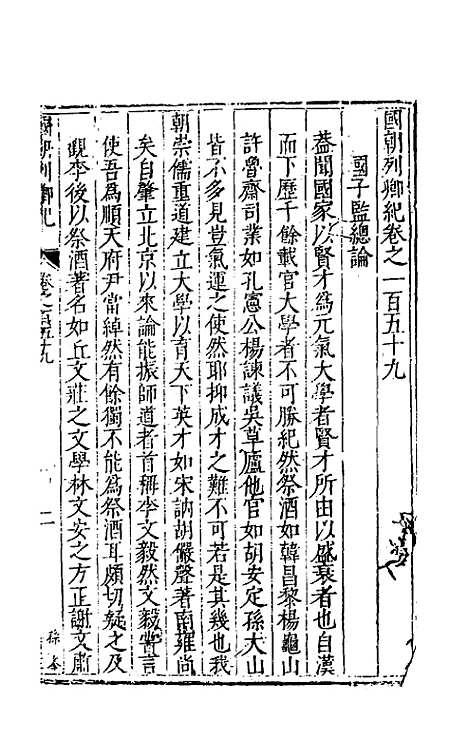 國朝列卿紀卷之一百五十九
國子監總論
葢聞國家以賢才為元氣大學者賢才所由以盛衰者也自漢
而下歷千餘載官大學者不可勝紀然祭酒如韓昌黎楊龜山
許魯齋司業如孔憲公楊諫議吳草廬他官如胡安定孫大山
皆不多見豈氣運之使然耶抑成才之難不可若是其幾也我
朝崇儒重道建立大學以育天下英才如宋訥胡儼聲著南雍尚
矣自肇立北京以來論能振師道者首稱李文毅然文毅嘗言
使吾為順天府尹當綽然有餘獨不能為祭酒耳頗切疑之及
觀李後以祭酒著名如丘文莊之文學林文安之方正謝文肅
國朝列卿紀
卷之一百五十九
二